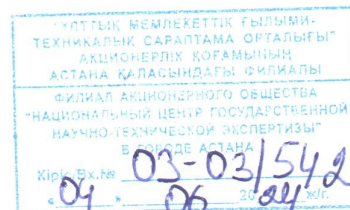 "ҰЛТТЫҚ МЕМЛЕКЕТТІК ҒЫЛЫМИ-
ТЕХНИКАЛЫҚ САРАПТАМА ОРТАЛЫҒЫ"
АКЦИОНЕРЛІК ҚОҒАМЫНЫҢ
АСТАНА ҚАЛАСЫНДАҒЫ ФИЛИАЛЫ
ФИЛИАЛ АКЦИОНЕРНОГО ОБЩЕСТВА
"НАЦИОНАЛЬНЫЙ ЦЕНТР ГОСУДАРСТВЕННОЙ
НАУЧНО-ТЕХНИЧЕСКОЙ ЭКСПЕРТИЗЫ"
В ГОРОДЕ АСТАНА
Кіріс/Вх.№ 03-03/542
«04» 06 2024 ж/г.